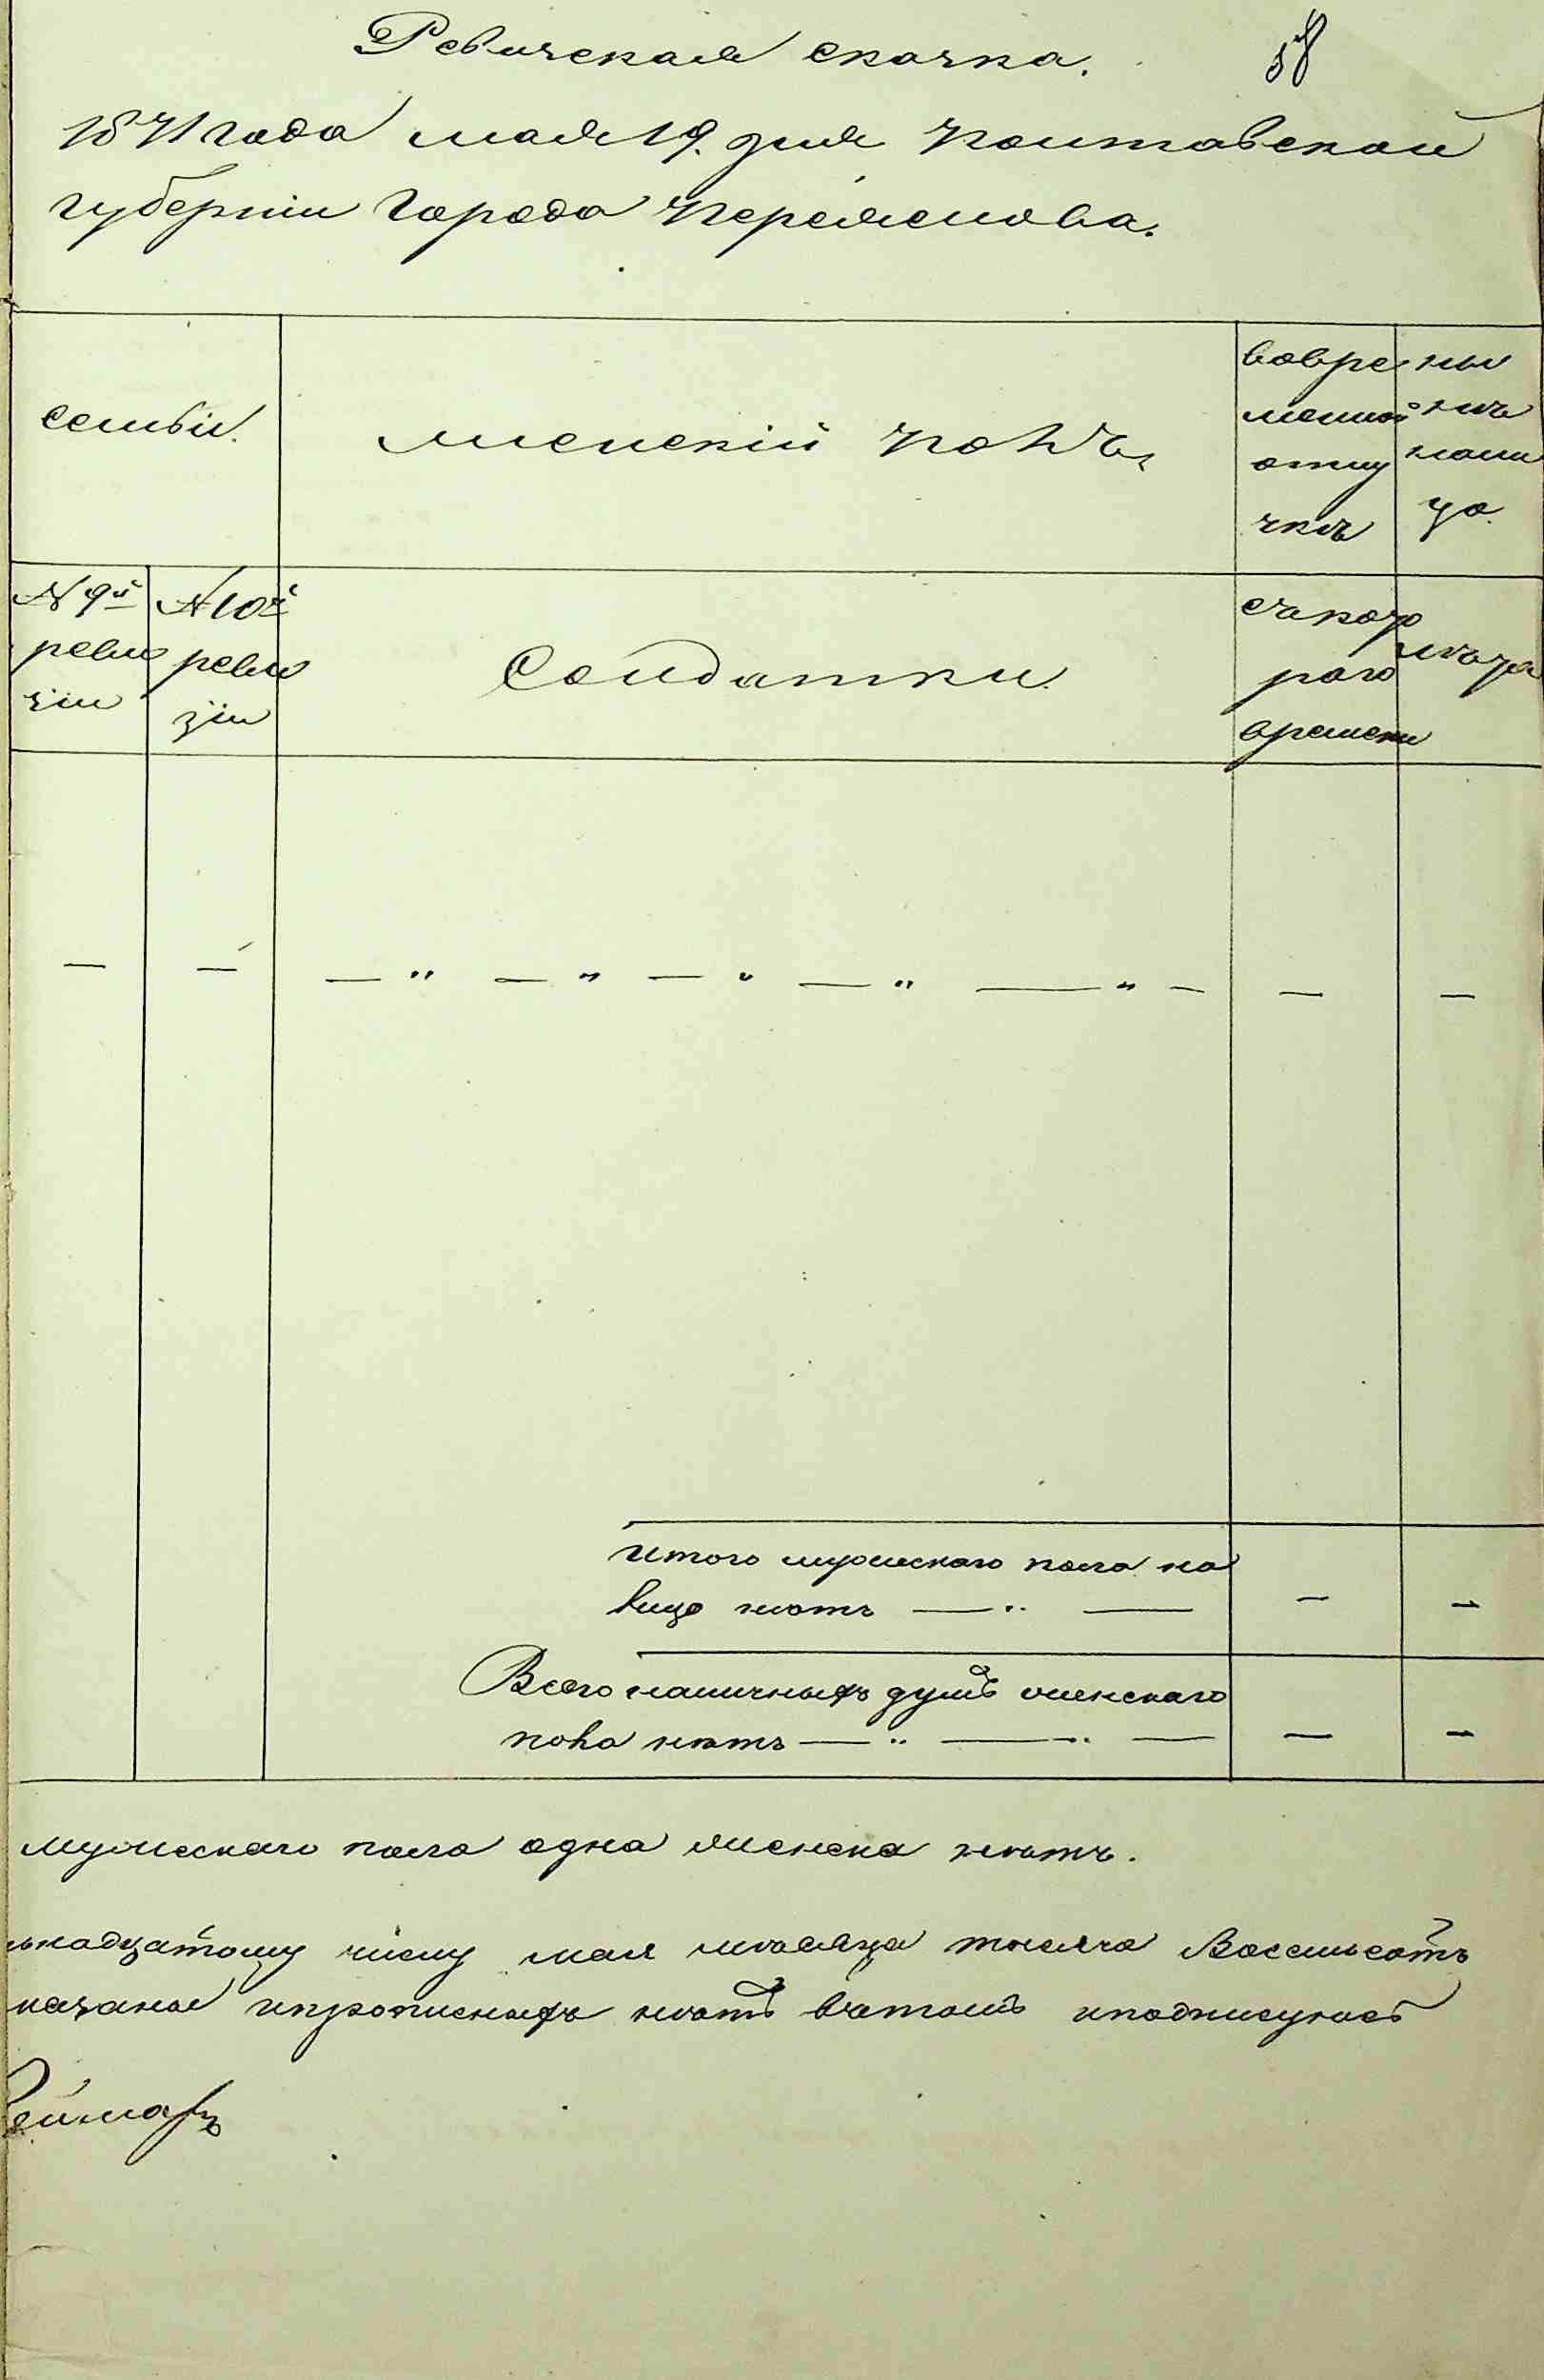 Ревизская сказка.
58
1871 года мая 19. дня Полтавской
губерніи города Переяслова.
семьи.
женскій полъ,
вовре
менной
отлу
чкѣ
ны
нѣ
нали
цо.
№ 9й
реви
зіи
№ 10й
реви
зіи
Солдатки.
съкото
раго
времени
лѣта
— — — " — " — " — " — " — — —
Итого мужескаго пола на
лицо нѣтъ — " — — —
Всего наличныхъ душъ женскаго
пола нѣтъ — " — " — — —
мужескаго пола одна женска нѣтъ.
ьнадцатому числу мая мѣсяца тысяча Восемьсотъ
казаны ипрописныхъ нѣтъ вчемъ иподписуюсь